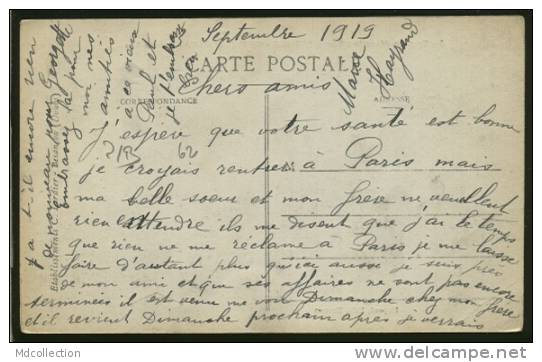 Septembre 1919
CARTE POSTALE
CORRESPONDANCE
ADRESSE
Chers amis
J'espère que votre santé est bonne
je croyais rentrer à Paris mais
ma belle soeur et mon frère ne veullent
rien entendre ils me disent que j'ai le temps
que rien ne me réclame à Paris je me laisse
faire d'autant plus qu'ici aussi je suis près
de mon ami et que ses affaires ne sont pas encore
terminées il est venu me voir Dimanche chez mon frère
et il revient Dimanche prochain après je verrais
y a t-il encore rien
de nouveau pour Georgette
embrassez la pour
moi mes
amitiés
à ce vieux
Paul et
je t'embrasse
bien
Marie
2 B
62
Mdcollection
http://www.delcampe.net